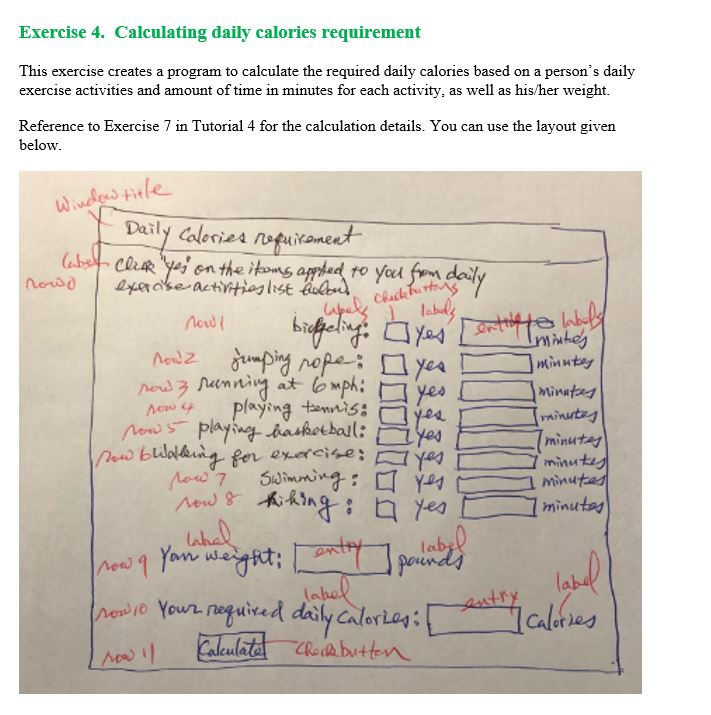 Exercise 4. Calculating daily calories requirement
This exercise creates a program to calculate the required daily calories based on a person's daily
exercise activities and amount of time in minutes for each activity, as well as his/her weight.
Reference to Exercise 7 in Tutorial 4 for the calculation details. You can use the layout given
below.
Window title
Daily Calories requirement
label
row 0
Click "yes" on the items applied to you from daily
exercise activities list below
labels checkbuttons labels entries labels
row 1 bicycling: Yes minutes
row 2 jumping rope: yes minutes
row 3 running at 6 mph: yes minutes
row 4 playing tennis: yes minutes
row 5 playing basketball: yes minutes
row 6 Walking for exercise: yes minutes
row 7 Swimming: yes minutes
row 8 hiking: yes minutes
label entry label
row 9 Your weight: pounds
label entry label
row 10 Your required daily calories: Calories
row 11 Calculate Check button